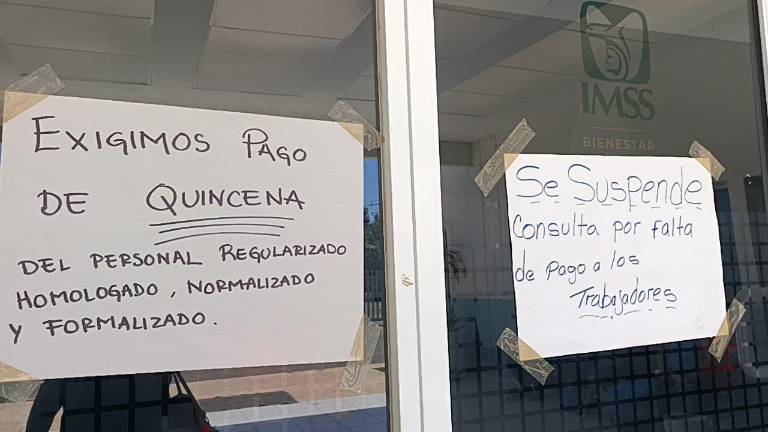 EXIGIMOS PAGO
DE QUINCENA
DEL PERSONAL REGULARIZADO
HOMOLOGADO, NORMALIZADO
Y FORMALIZADO.
IMSS
BIENESTAR
Se Suspende
Consulta por falta
de Pago a los
Trabajadores